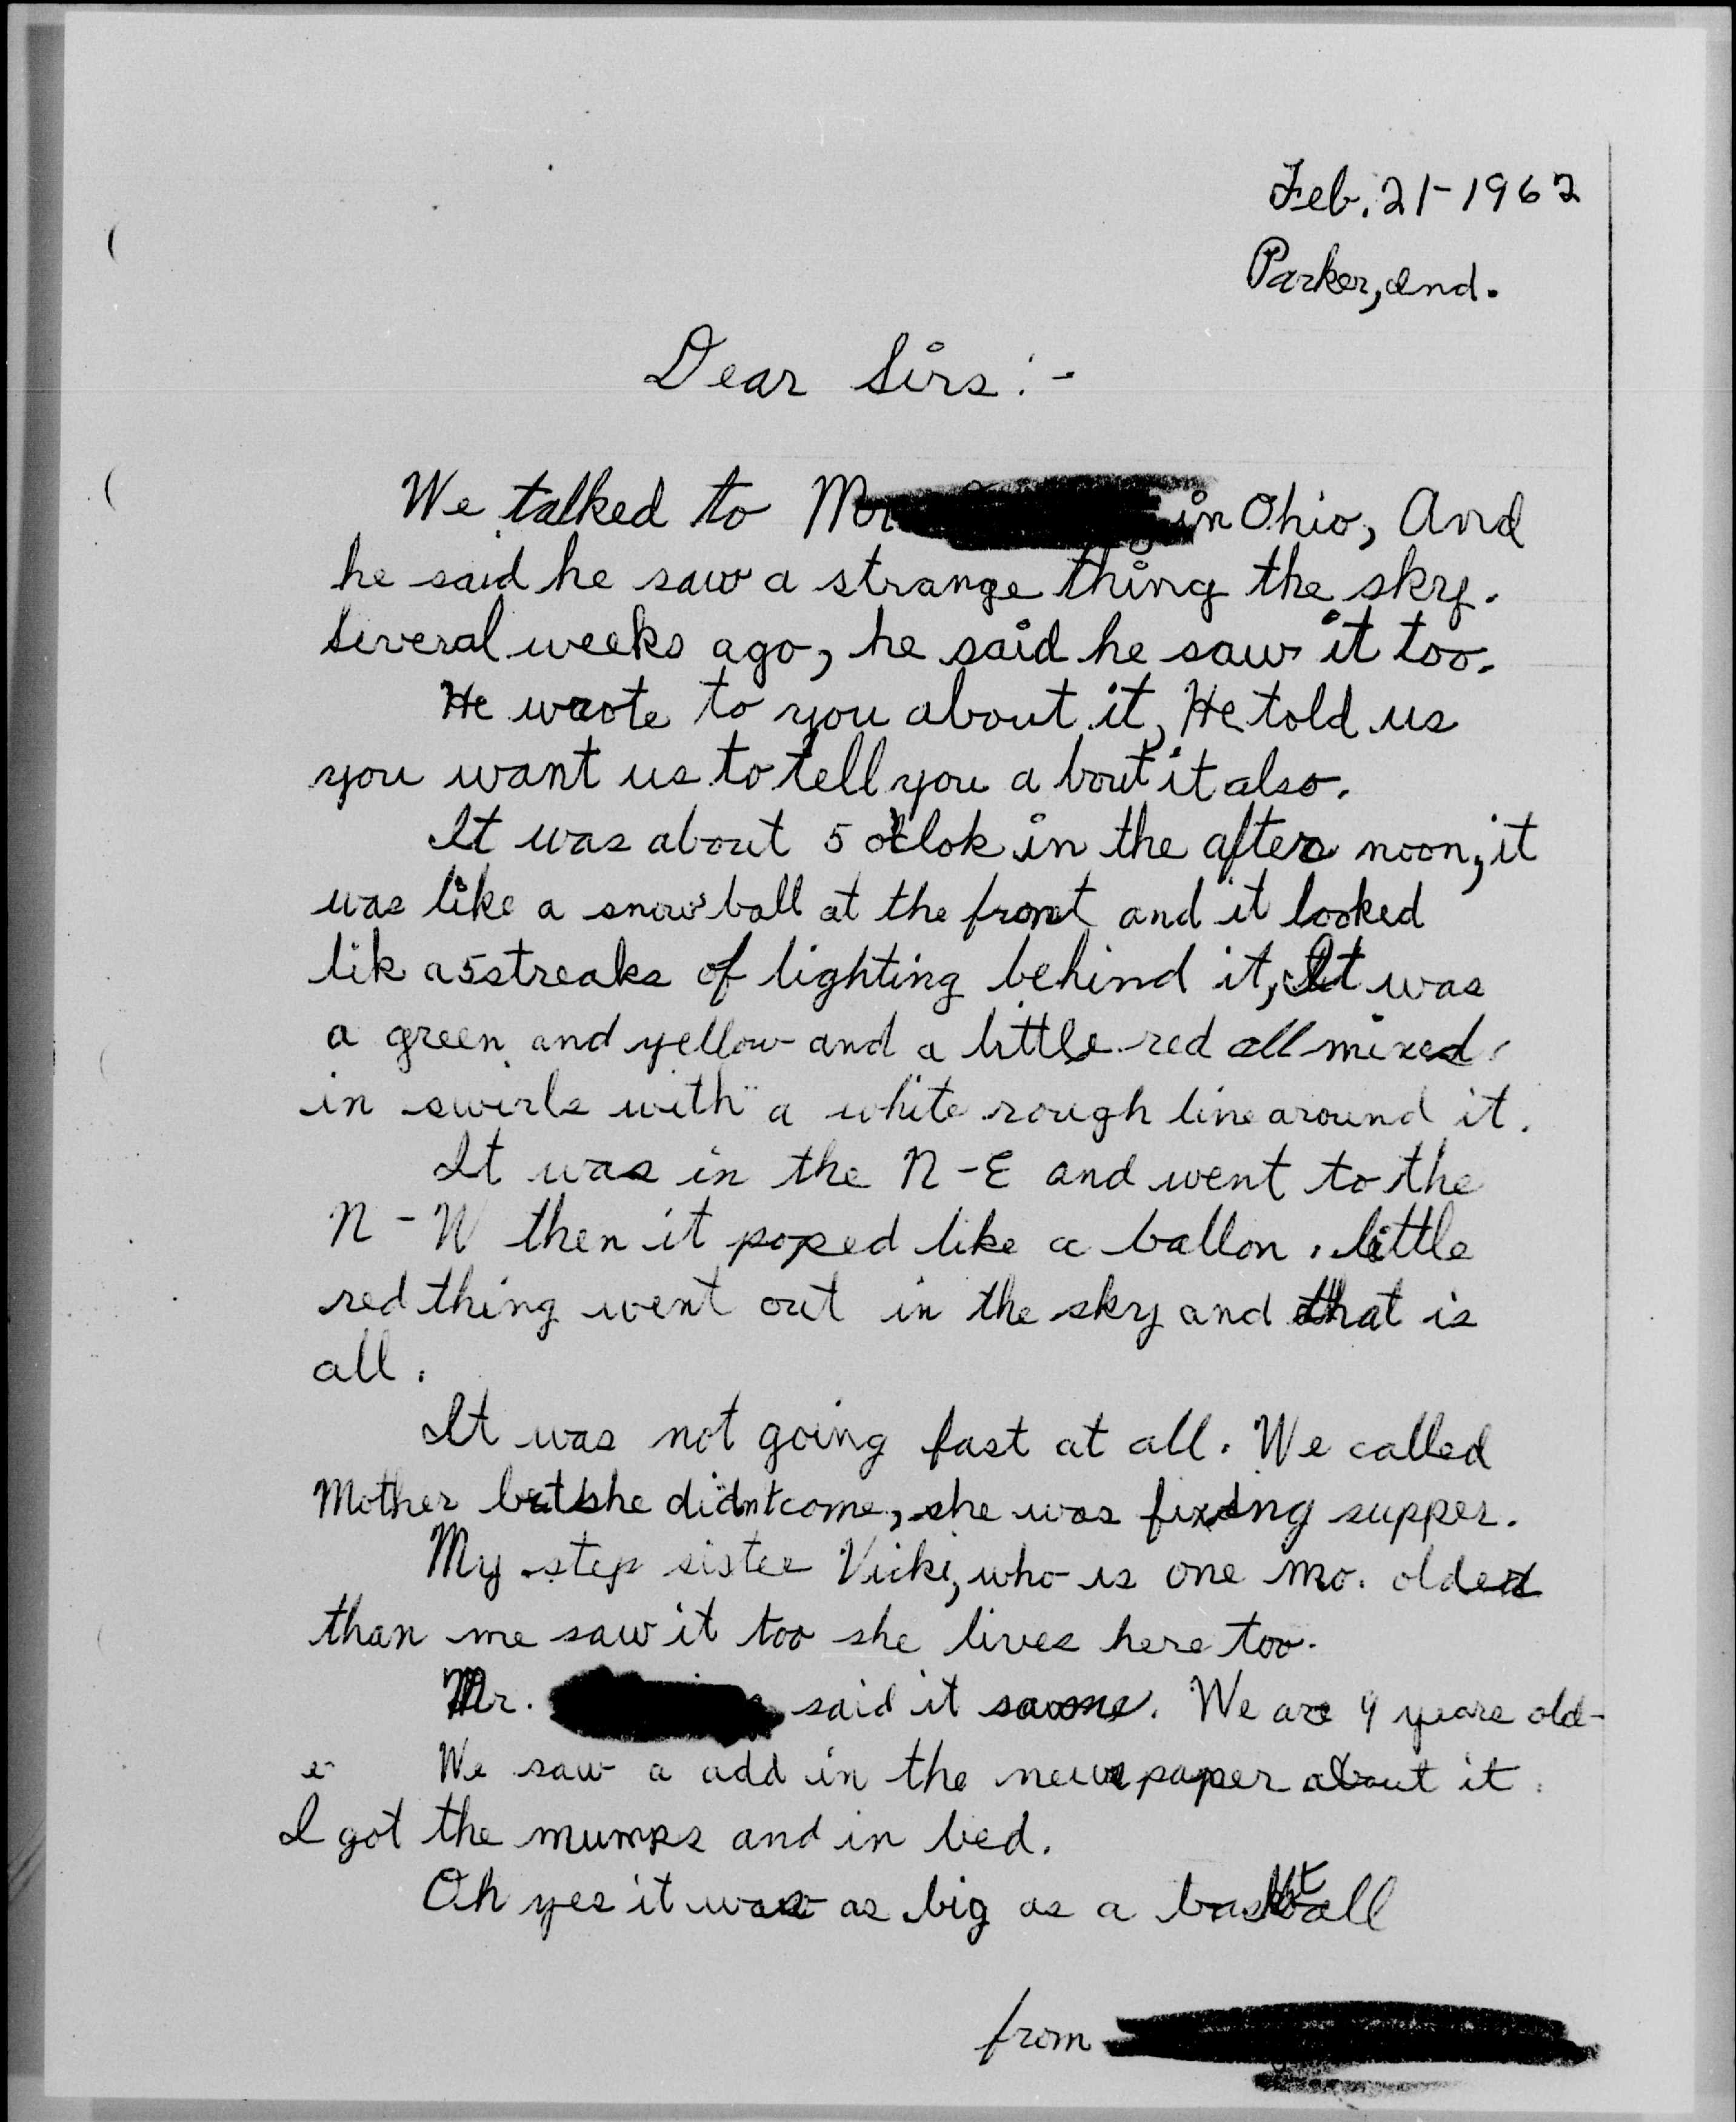 Feb. 21-1962
Parker, Ind.
Dear Sirs:-
We talked to Mr in Ohio, And
he said he saw a strange thing the sky.
Several weeks ago, he said he saw it too.
He wrote to you about it, He told us
you want us to tell you a bout it also.
It was about 5 o'clok in the after noon, it
was like a snow ball at the front and it looked
lik a 5 streaks of lighting behind it, It was
a green and yellow and a little red all mixed
in swirls with a white rough line around it.
It was in the N-E and went to the
N-W then it poped like a ballon. little
red thing went out in the sky and that is
all.
It was not going fast at all. We called
Mother but she didn't come, she was fixing supper.
My step sister Vicki, who is one mo. older
than me saw it too she lives here too.
Mr. said it . We are 9 years old-
We saw a add in the news paper about it.
I got the mumps and in bed.
Oh yes it was as big as a basketball
from